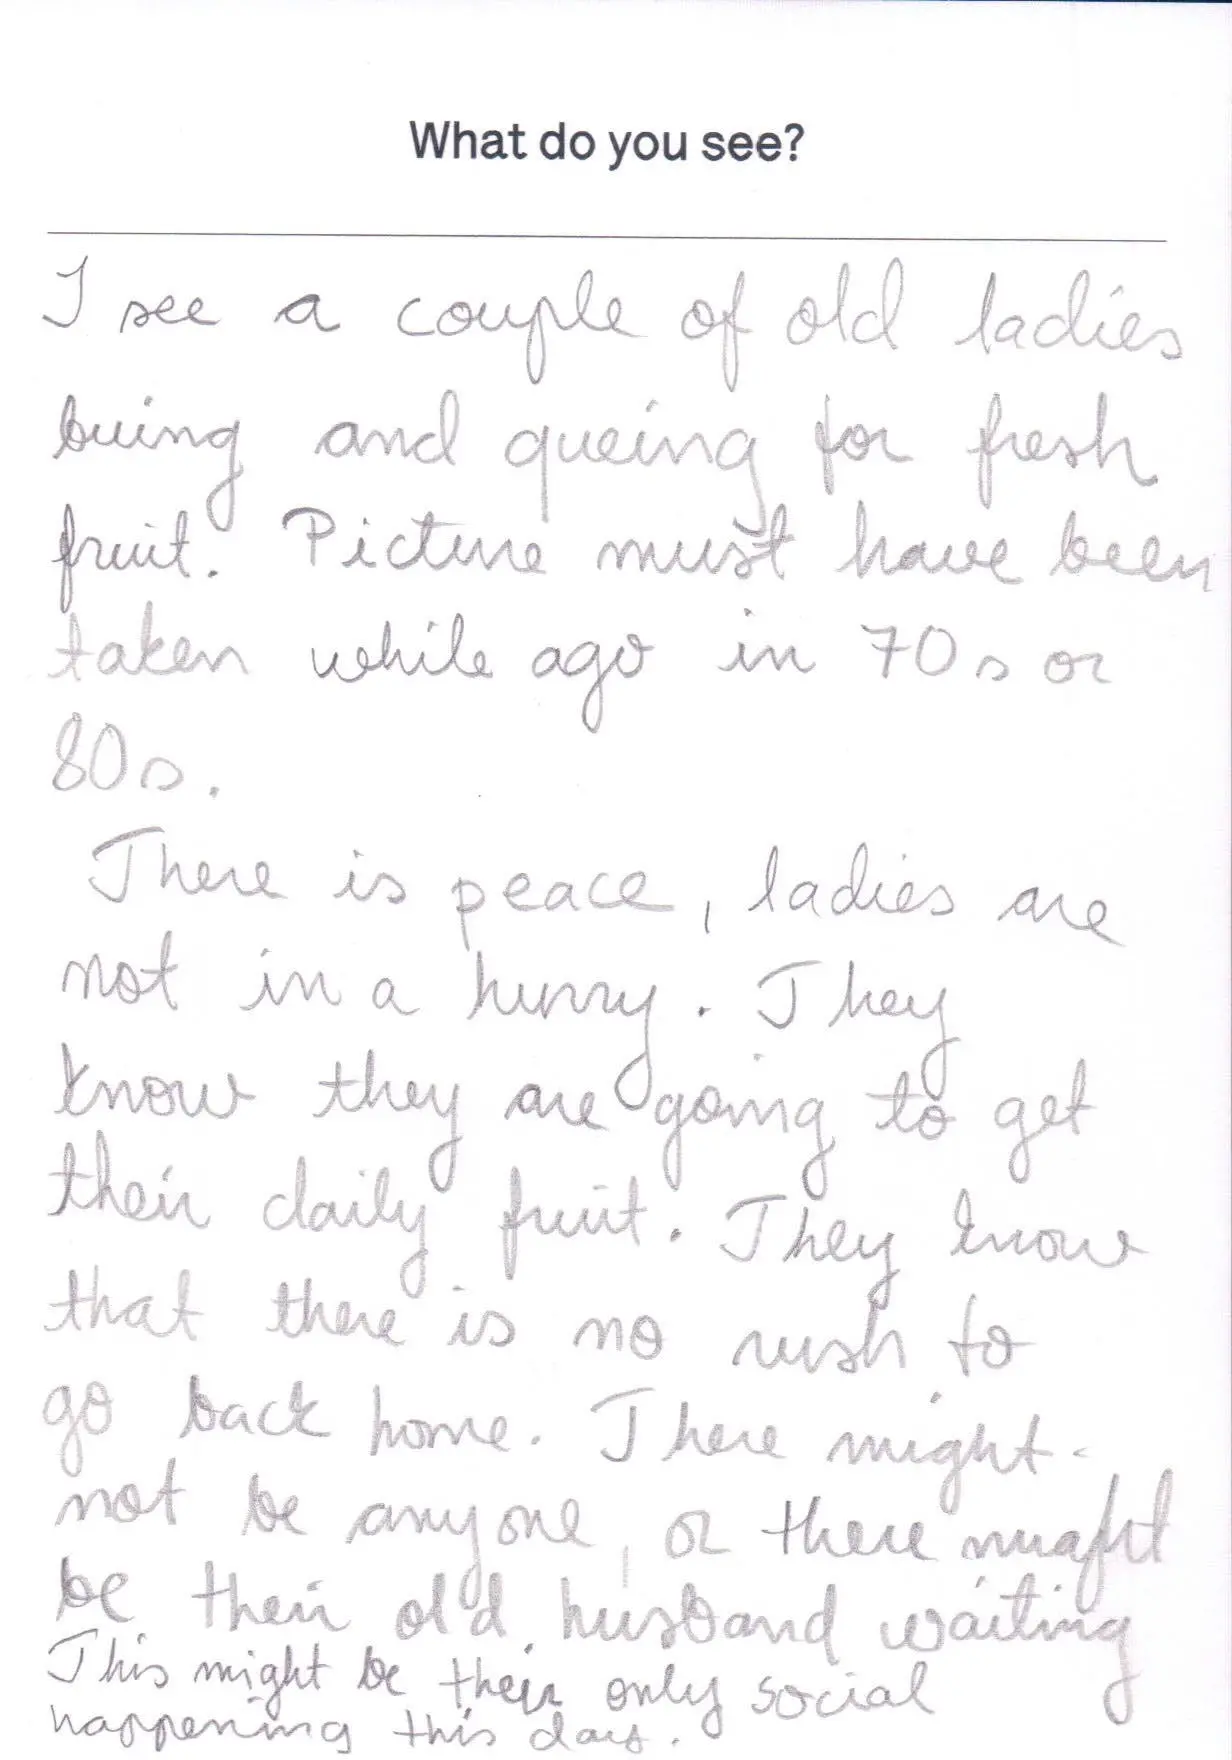 What do you see?
I see a couple of old ladies
buing and queing for fresh
fruit. Picture must have been
taken while ago in 70s or
80s.
There is peace, ladies are
not in a hurry. They
know they are going to get
their daily fruit. They know
that there is no rush to
go back home. There might
not be anyone, or there might
be their old husband waiting
This might be their only social
happening this day.